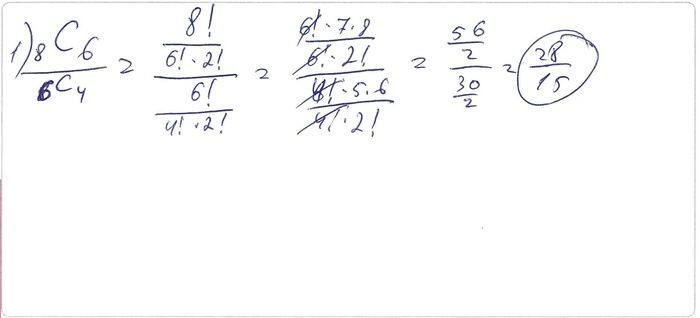 1) ₈C₆ / ₆C₄ = (8! / (6! · 2!)) / (6! / (4! · 2!)) = ((6! · 7 · 8) / (6! · 2!)) / ((4! · 5 · 6) / (4! · 2!)) = (56 / 2) / (30 / 2) = 28 / 15